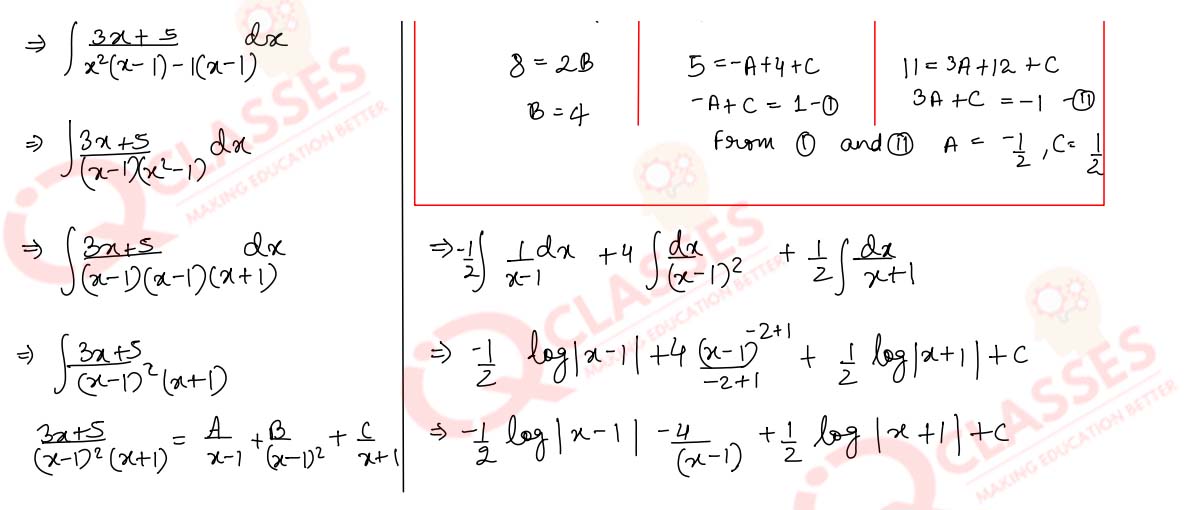 ⇒ ∫ 3x+5 / x²(x-1)-1(x-1) dx
⇒ ∫ 3x+5 / (x-1)(x²-1) dx
⇒ ∫ 3x+5 / (x-1)(x-1)(x+1) dx
⇒ ∫ 3x+5 / (x-1)²(x+1)
3x+5 / (x-1)²(x+1) = A / x-1 + B / (x-1)² + C / x+1
8 = 2B
B = 4
5 = -A+4+C
-A+C = 1 - ①
11 = 3A+12+C
3A+C = -1 - ⑪
From ① and ⑪ A = -1/2 , C = 1/2
⇒ -1/2 ∫ 1/x-1 dx + 4 ∫ dx/(x-1)² + 1/2 ∫ dx/x+1
⇒ -1/2 log|x-1| + 4 (x-1)^-2+1 / -2+1 + 1/2 log|x+1| + C
⇒ -1/2 log|x-1| - 4/(x-1) + 1/2 log|x+1| + C
CLASSES
MAKING EDUCATION BETTER
CLASSES
MAKING EDUCATION BETTER
CLASSES
MAKING EDUCATION BETTER